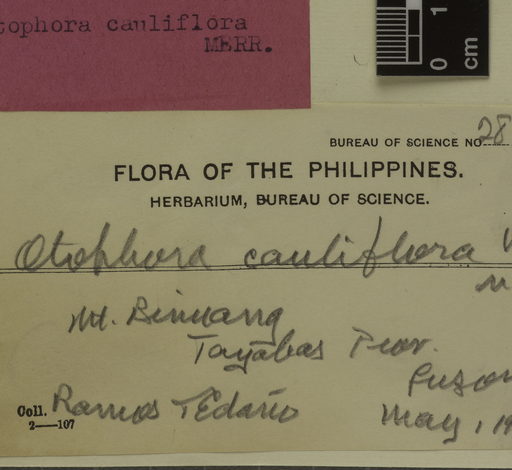 tophora cauliflora
MERR.
0 1
cm
BUREAU OF SCIENCE NO. 28
FLORA OF THE PHILIPPINES.
HERBARIUM, BUREAU OF SCIENCE.
Otophora cauliflora
Mt. Binuang
Tayabas Prov.
Luzon
Coll. Ramos & Edaño
2—107
May, 19